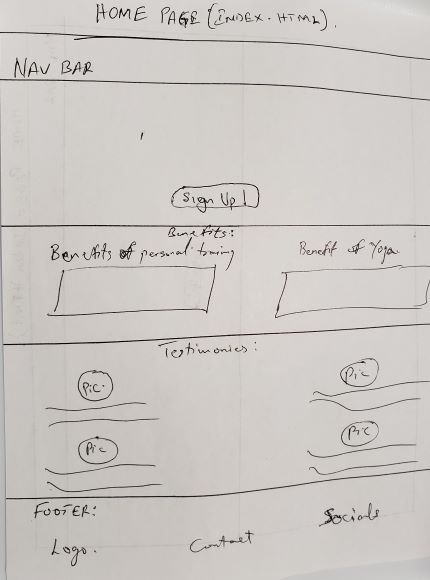 HOME PAGE (INDEX.HTML).
NAV BAR
Sign Up!
Benefits:
Benefits of personal training
Benefit of Yoga
Testimonies:
Pic.
Pic
Pic
Pic
FOOTER:
Socials
Logo.
Contact